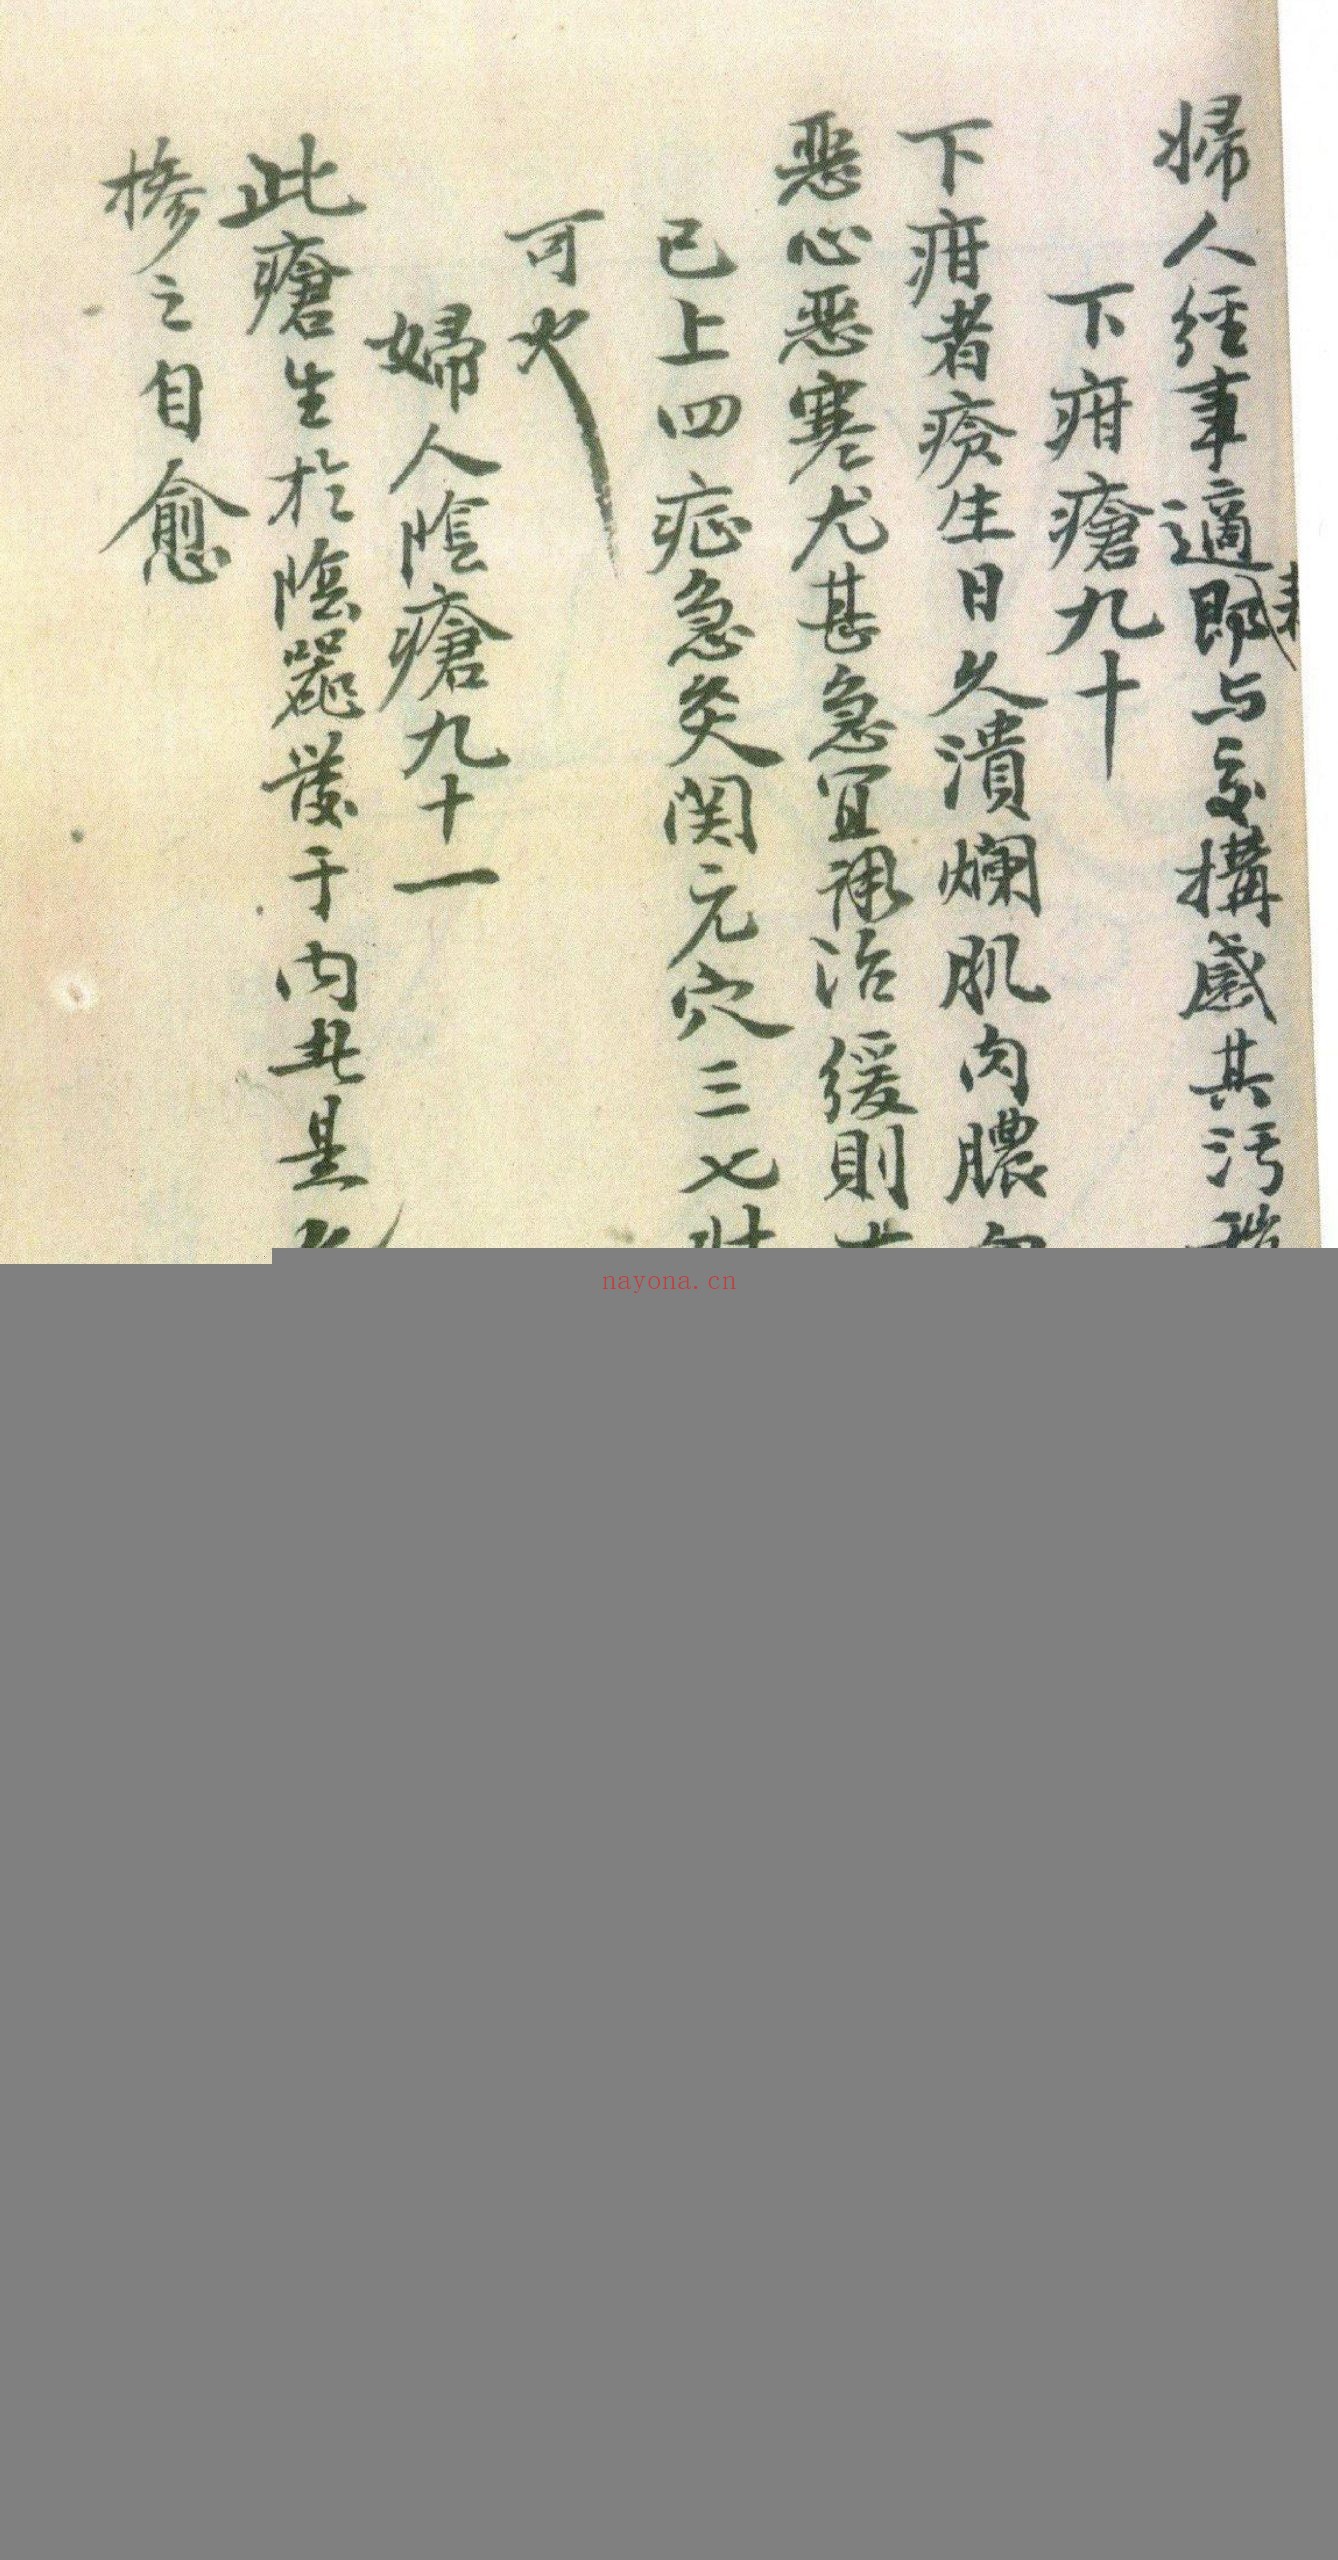 婦人经事適即与交搆感其污
下疳瘡九十
下疳者瘡生日久潰爛肌肉膿
惡心惡寒尤甚急宜治緩則
已上四症急灸関元穴三七壮
可也
婦人陰瘡九十一
此瘡生於陰器發于内此是
掺之自愈
nayona.cn